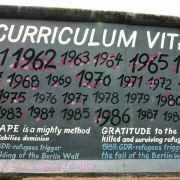 CURRICULUM VIT
1 1962 1963 1964 1965 1
1968 1969 1970 1971 1972
1975 1976 1977 1978 1979
1983 1984 1985 1986 1987
APE is a mighty method GRATITUDE to the
killed and surviving refug
GDR-refugees trigger 1989: GDR-refugees trigger
lding of the Berlin Wall the fall of the Berlin Wal